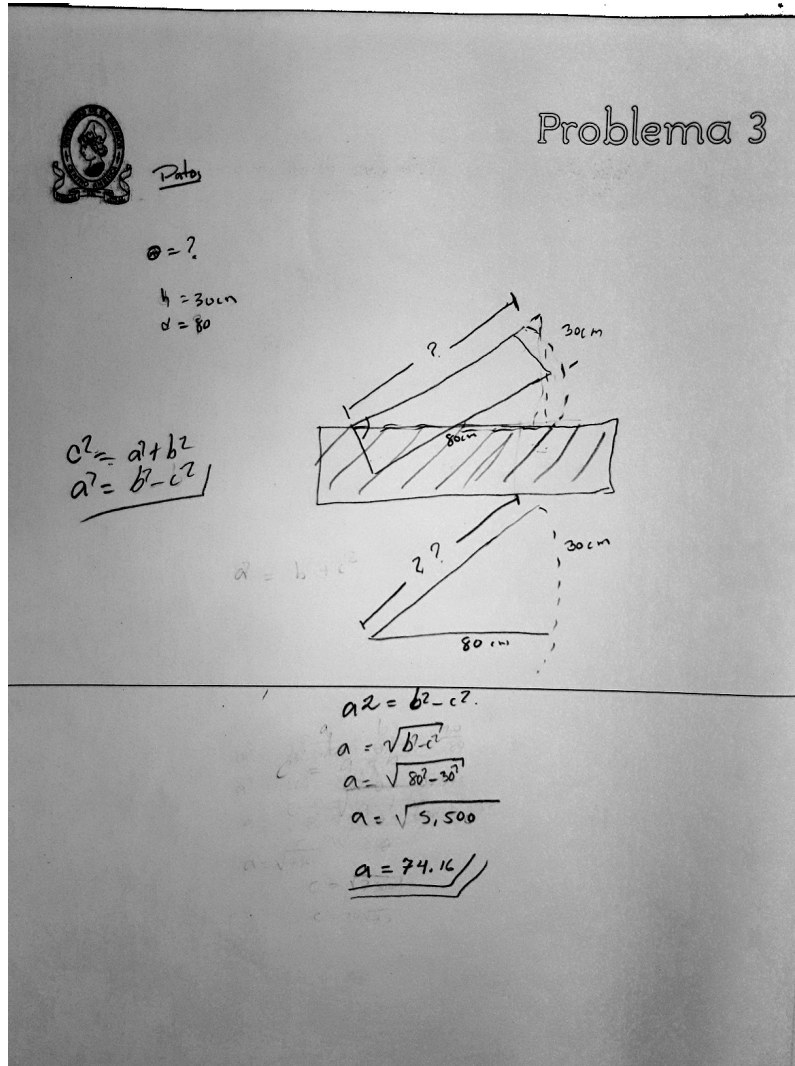 Problema 3
Datos
θ = ?
h = 30cm
d = 80
30cm
?
80cm
c² = a² + b²
a² = b² - c²
30cm
2?
80 cm
a2 = b² - c².
a = √b²-c²
a = √80²-30²
a = √5,500
a = 74.16